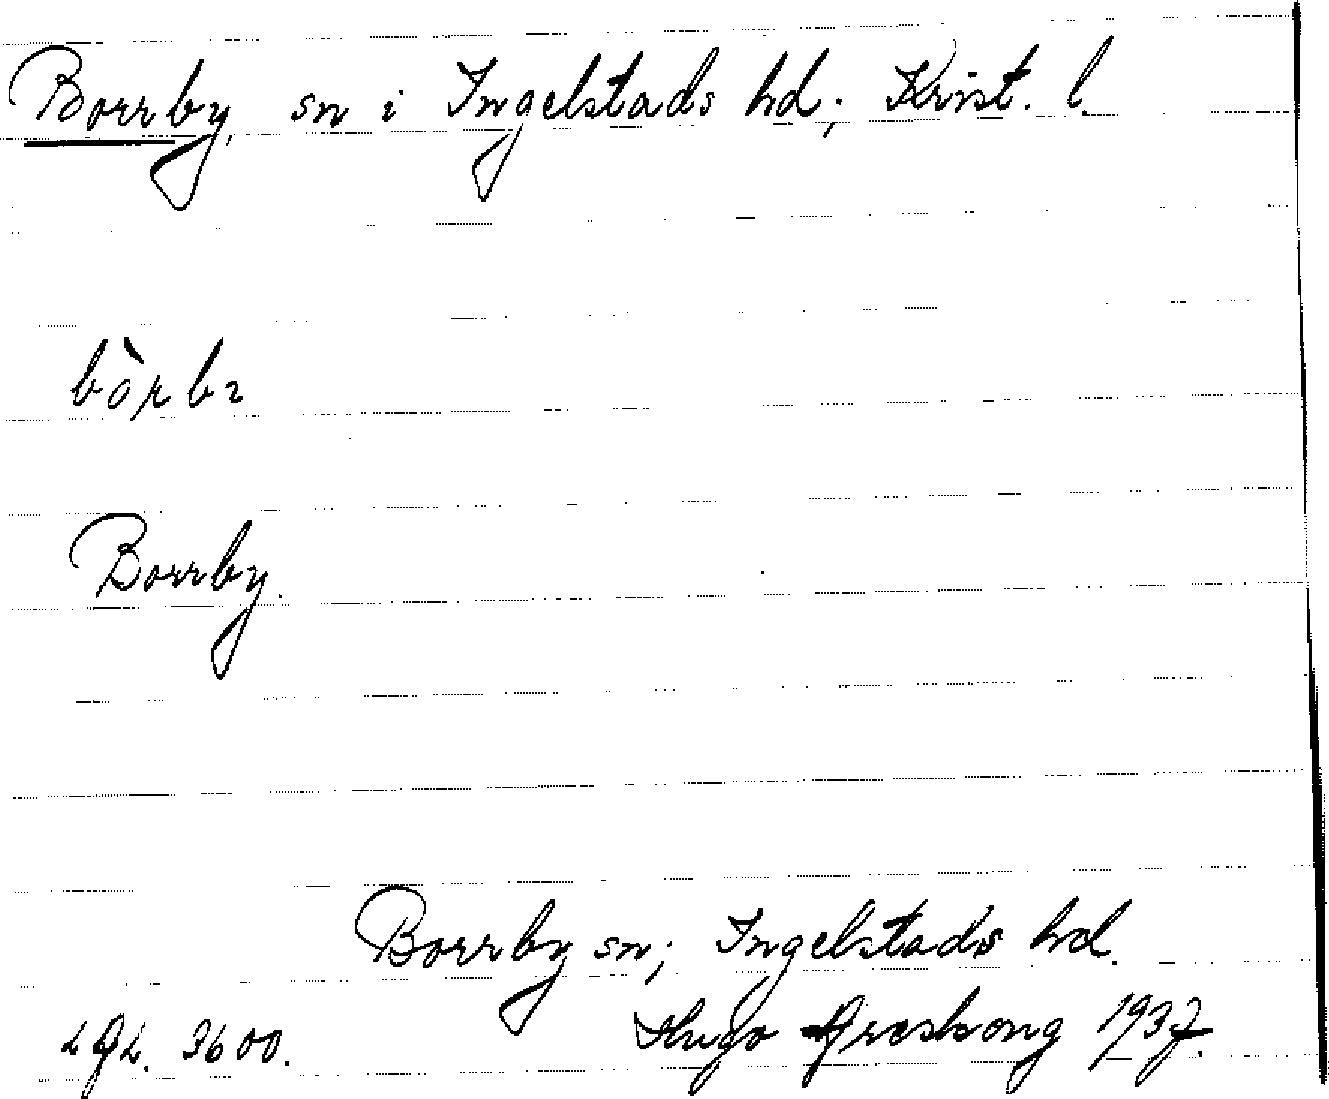 Borrby, sn i Ingelstads hd; Krist. l.
bòrbı
Borrby.
Borrby sn; Ingelstads hd.
LGL. 3600. Hugo Areskoug 1937.